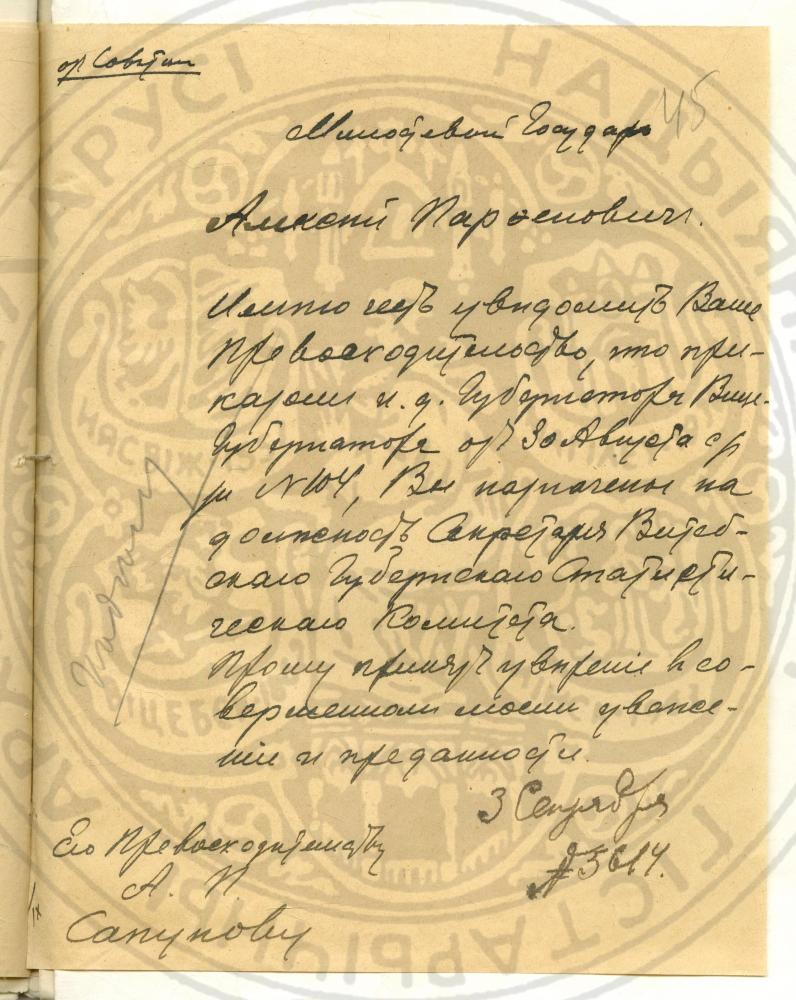 от Совета
45
Милостивый Государь
Алексей Парфенович.
Имею честь уведомить Ваше
Превосходительство, что при-
казом и. д. Губернатора Вице-
Губернатора от 30 Августа с/г
за №104, Вы назначены на
должность Секретаря Витеб-
скаго Губернскаго Статисти-
ческаго Комитета.
Прошу принять уверение в со-
вершенном моем уваже-
нии и преданности.
3 Сентября
№ 5614.
Его Превосходительству
А. П.
Сапунову